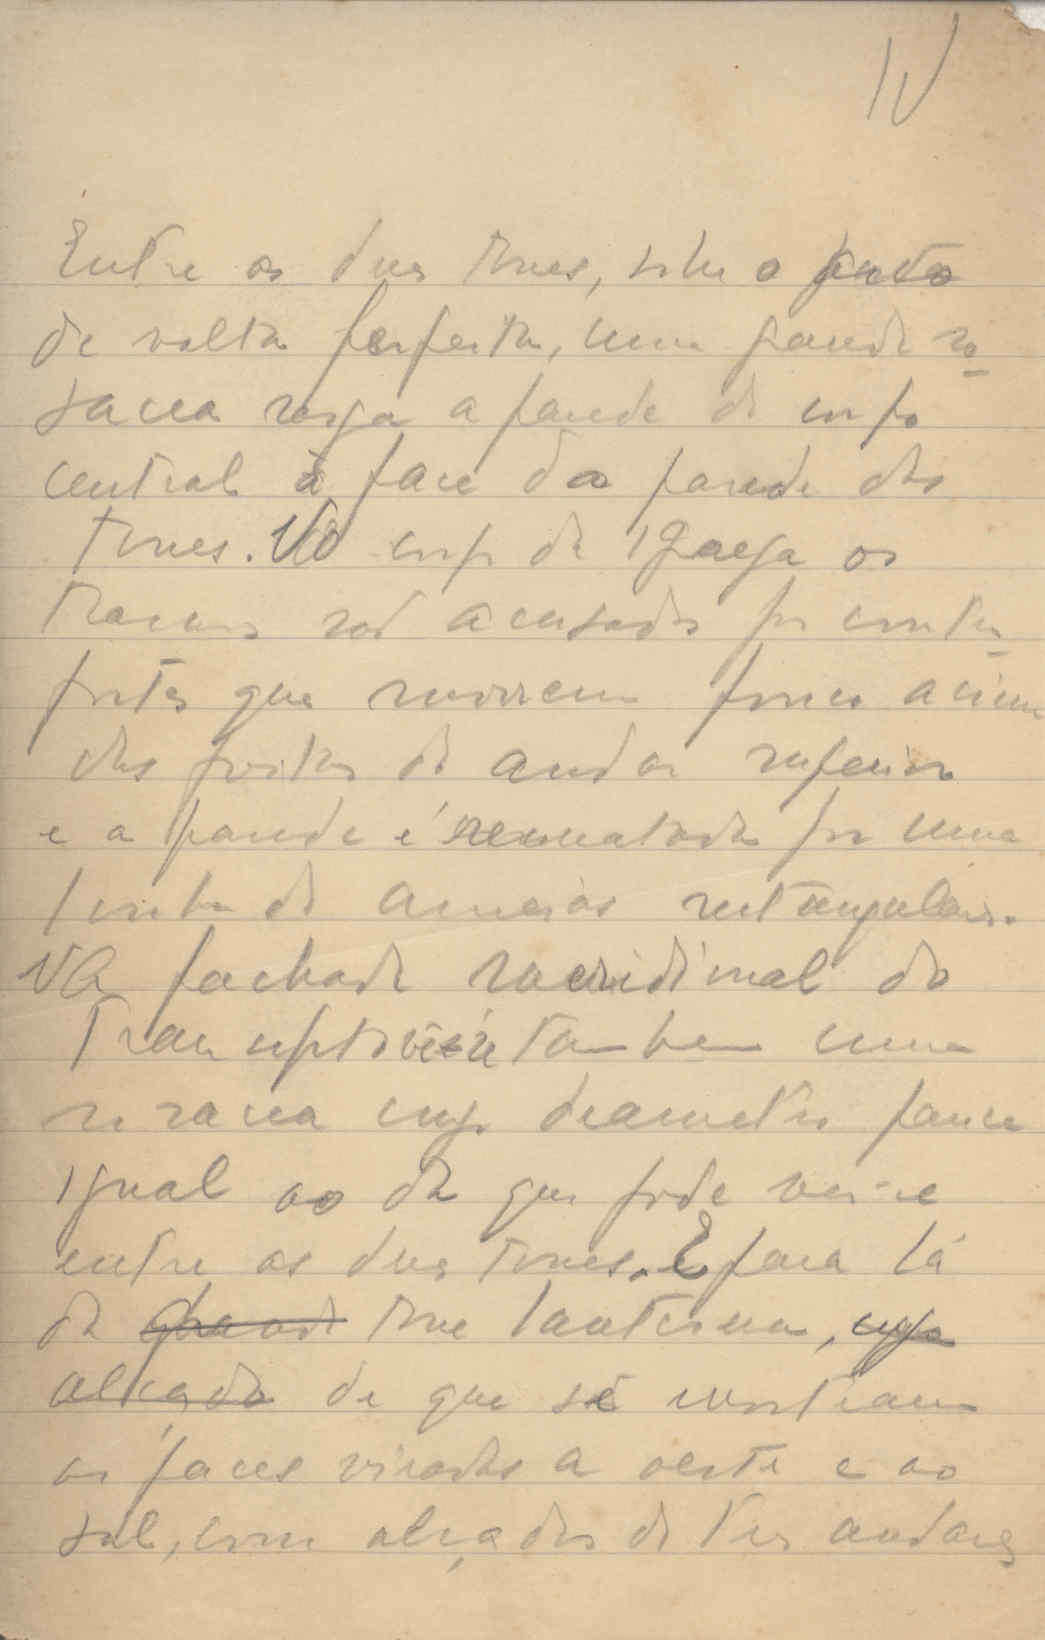 IV
Entre as duas torres, sobre o
de volta perfeita, uma grande ro-
sacea rasga a parede do corpo
central à face da parede das
torres. No corpo da igreja os
tramos são acusados por contra-
fortes que morrem pouco acima
das frestas do andar superior
e a parede é rematada por uma
linha de ameias rectangulares.
Na fachada meridional do
Transepto vê-se tambem uma
rosacea cujo diametro parece
igual ao da que pode ver-se
entre as duas torres. E para lá
da grande torre lanterna, cujo
alçado de que se mostram
as faces viradas a oeste e ao
sul, com alçados de tres andares